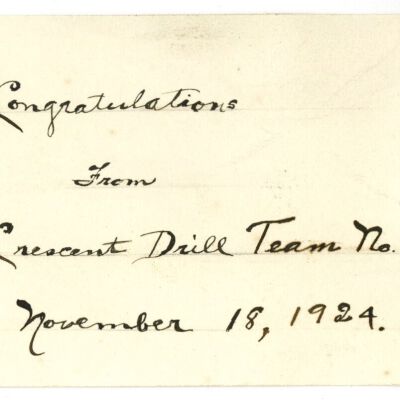 Congratulations
From
Crescent Drill Team No.
November 18, 1924.